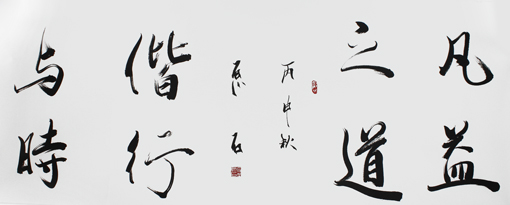 凡益
之道
与時
偕行
丙申秋
石